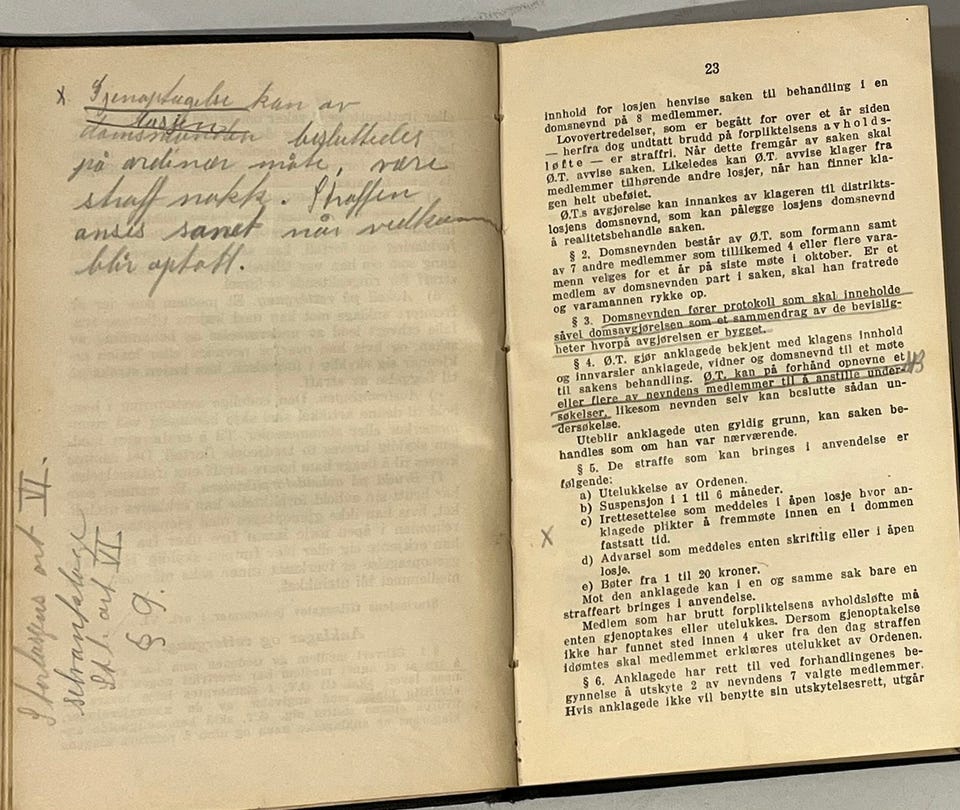 x. Gjenoptagelse kan av
losjen
domsmunden besluttedes
på ordinær måte, være
straff nokk. Straffen
anses sonet når vedkom
blir optatt.
Storlogens art VI.
selvanklage
St. l. art VI
§ 9.
23
innhold for losjen henvise saken til behandling i en
domsnevnd på 8 medlemmer.
Lovovertredelser, som er begått for over et år siden
— herfra dog undtatt brudd på forpliktelsens avholds-
løfte — er straffri. Når dette fremgår av saken skal
Ø.T. avvise saken. Likeledes kan Ø.T. avvise klager fra
medlemmer tilhørende andre losjer, når han finner kla-
gen helt ubeføiet.
Ø.T.s avgjørelse kan innankes av klageren til distrikts-
losjens domsnevnd, som kan pålegge losjens domsnevnd
å realitetsbehandle saken.
§ 2. Domsnevnden består av Ø.T. som formann samt
av 7 andre medlemmer som tillikemed 4 eller flere vara-
menn velges for et år på siste møte i oktober. Er et
medlem av domsnevnden part i saken, skal han fratrede
og varamannen rykke op.
§ 3. Domsnevnden fører protokoll som skal inneholde
såvel domsavgjørelsen som et sammendrag av de bevislig-
heter hvorpå avgjørelsen er bygget.
§ 4. Ø.T. gjør anklagede bekjent med klagens innhold
og innvarsler anklagede, vidner og domsnevnd til et møte
til sakens behandling. Ø.T. kan på forhånd opnevne et
eller flere av nevndens medlemmer til å anstille under-
søkelser, likesom nevnden selv kan beslutte sådan un-
dersøkelse.
Uteblir anklagede uten gyldig grunn, kan saken be-
handles som om han var nærværende.
§ 5. De straffe som kan bringes i anvendelse er
følgende:
a) Utelukkelse av Ordenen.
b) Suspensjon i 1 til 6 måneder.
c) Irettesettelse som meddeles i åpen losje hvor an-
klagede plikter å fremmøte innen en i dommen
fastsatt tid.
x
d) Advarsel som meddeles enten skriftlig eller i åpen
losje.
e) Bøter fra 1 til 20 kroner.
Mot den anklagede kan i en og samme sak bare en
straffeart bringes i anvendelse.
Medlem som har brutt forpliktelsens avholdsløfte må
enten gjenoptakes eller utelukkes. Dersom gjenoptakelse
ikke har funnet sted innen 4 uker fra den dag straffen
idømtes skal medlemmet erklæres utelukket av Ordenen.
§ 6. Anklagede har rett til ved forhandlingenes be-
gynnelse å utskyte 2 av nevndens 7 valgte medlemmer.
Hvis anklagede ikke vil benytte sin utskytelsesrett, utgår